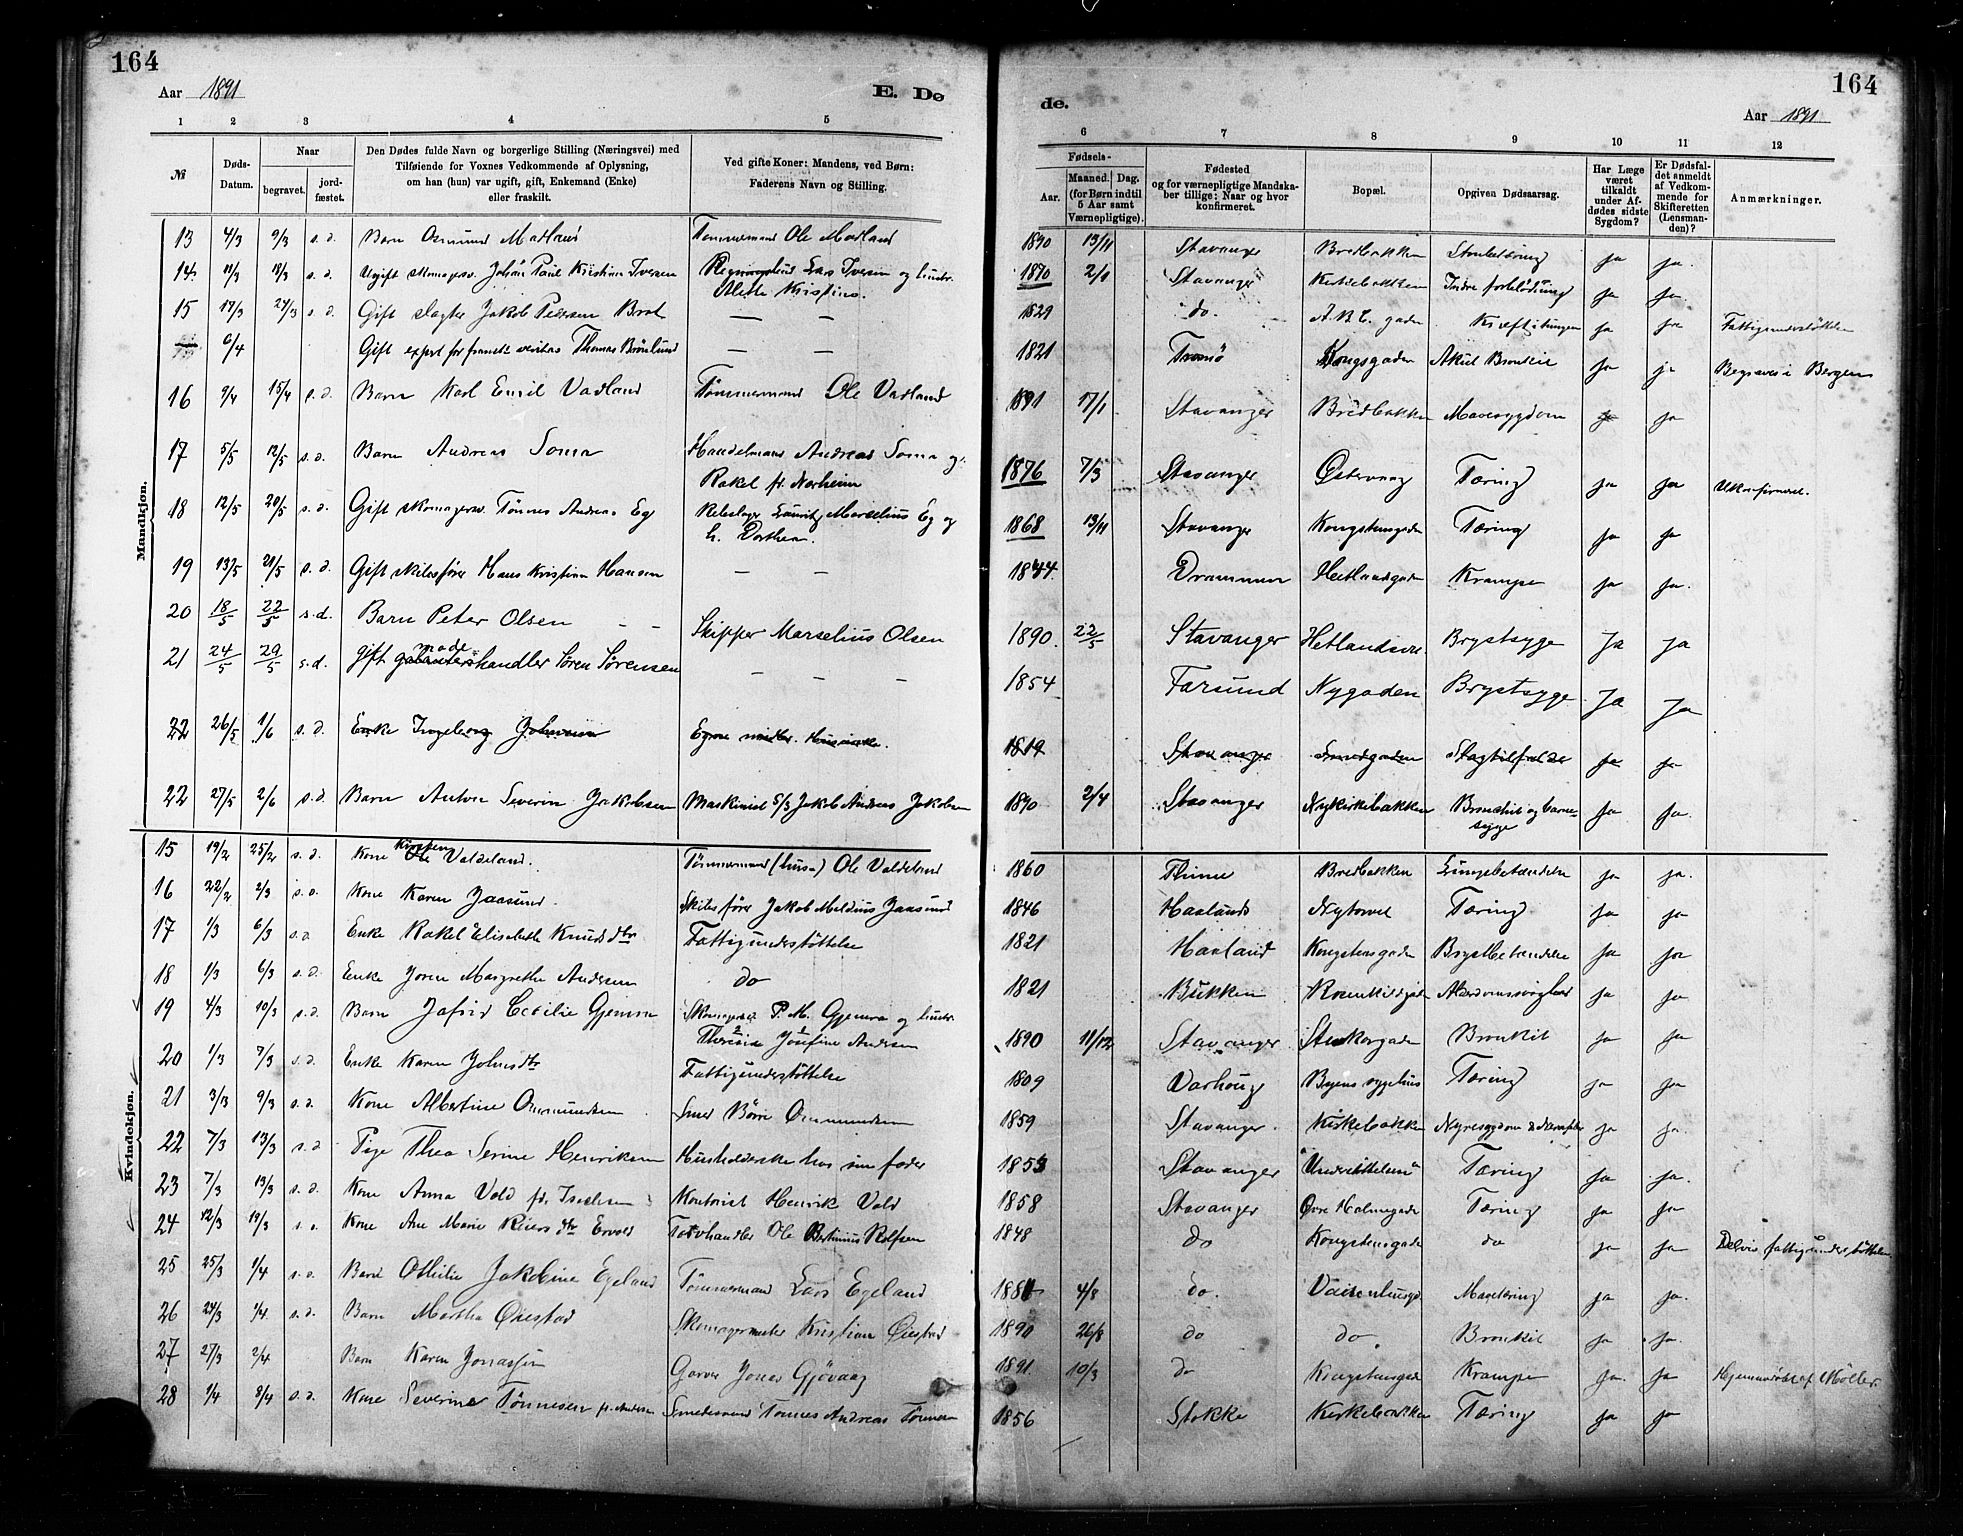 164
Aar 1891
E. Dø
1 2 3 4 5
№
Døds-
Datum.
Naar
begravet.
jord-
fæstet.
Den Dødes fulde Navn og borgerlige Stilling (Næringsvei) med
Tilføiende for Voxnes Vedkommende af Oplysning,
om han (hun) var ugift, gift, Enkemand (Enke)
eller fraskilt.
Ved gifte Koner: Mandens, ved Børn:
Faderens Navn og Stilling.
Mandkjøn.
13 4/3 9/3 s.d. Barn Osmund Matland Tømmermand Ole Matland
14 11/3 18/3 s.d. Ugift skomagersv. Johan Paul Kristian Iversen Lars Iversen og hustr.
Alette Kristine.
15 17/3 24/3 s.d. Gift slagter Jakob Pedersen Brat — —
6/4 Gift expert for fransk veritas Thomas Brønlund — —
16 9/4 15/4 s.d. Barn Karl Emil Vadland Tømmermand Ole Vadland
17 5/5 12/5 s.d. Barn Andreas Soma Handelsmand Andreas Soma og
Rakel f. Norheim
18 12/5 20/5 s.d. Gift skomagersv. Tønnes Andreas Eg Rebslager Lauritz Marselius Eg og
h. Dorthea.
19 13/5 21/5 s.d. Gift skibsfører Hans Kristian Hansen — —
20 18/5 22/5 s.d. Barn Peter Olsen — — Skipper Marselius Olsen
mode
21 24/5 29/5 s.d. gift galanterihandler Søren Sørensen — — —
22 26/5 1/6 s.d. Enke Ingeborg Johnsen Egne midler.
22 27/5 2/6 s.d. Barn Anton Severin Jakobsen Maskinist S/S Jakob Andreas Jakobsen
Kvindekjøn.
Kirsten
15 19/2 25/2 s.d. Kone Ole Valdeland. Tømmermand (husm) Ole Valdeland
16 22/2 2/3 s.d. Kone Karen Jaasund. Skibsfører Jakob Meldius Jaasund
17 1/3 6/3 s.d. Enke Rakel Elisabeth Knudsdtr Fattigunderstøttelse
18 1/3 6/3 s.d. Enke Joren Margrethe Andersen do
19 4/3 10/3 s.d. Barn Cecilie Gjemre Skomagersv. P. M. Gjemre og hustr.
Theresia Josefine Andersen
20 1/3 7/3 s.d. Enke Karen Johnsdtr Fattigunderstøttelse
21 3/3 9/3 s.d. Kone Albertine Ommundsen Smed Børre Ommundsen
22 7/3 13/3 s.d. Pige Thea Serine Henriksen Husholderske hos sin fader
23 7/3 13/3 s.d. Kone Anna Vold f. Isachsen Kontorist Henrik Vold
24 12/3 19/3 s.d. Kone Ane Marie Reiersdtr Ervold Tobvhandler Ole Bertinius Rolfsen
25 25/3 1/4 s.d. Barn Othilie Jakobine Egeland Tømmermand Lars Egeland
26 24/3 1/4 s.d. Barn Martha Øiestad Skomagermester Kristian Øiestad
27 27/3 2/4 Barn Karen Jonassen Garver Jonas Gjøvaag
28 1/4 8/4 s.d. Kone Severine Tønnesen f. Andersen Smedesvend Tønnes Andreas Tønnesen
164
de.
Aar 1891
6 7 8 9 10 11 12
Fødsels-
Aar.
Maaned. Dag.
(for Børn indtil
5 Aar samt
Værnepligtige).
Fødested
og for værnepligtige Mandska-
ber tillige: Naar og hvor
konfirmeret.
Bopæl.
Opgiven Dødsaarsag.
Har Læge
været
tilkaldt
under Af-
dødes sidste
Sygdom?
Er Dødsfal-
det anmeldt
af Vedkom-
mende for
Skifteretten
(Lensman-
den)?
Anmærkninger.
1890 13/11 Stavanger Bredbakken Strubetæring ja ja.
1870 2/1 Stavanger Kirkebakken Indre forblødning ja ja.
1829 do. A.B.C. gaden Kræft i tungen ja ja Fattigunderstøttelse
1821 Tromsø Kongsgaden Akut Bronkit ja ja Begraves i Bergen
1891 17/1 Stavanger Bredbakken Mavesygdom ja ja
1876 7/3 Stavanger Østervaag Tæring ja ja Ukonfirmeret.
1868 13/11 Stavanger Kongstensgaden Tæring ja ja
1844. Drammen Hetlandsgaden Krampe ja ja.
1890. 22/5 Stavanger Hetlandsvn. Brystsyge ja ja
1854 Farsund Nygaden Brystsyge ja ja
1819 Stavanger Smedgaden Slagtilfælde ja ja
1890 2/4 Stavanger Nykirkebakken Bronchit og barne-
syge ja ja.
1860 Thime Bredbakken Lungebetændelse ja ja.
1846 Haaland Nytorvet Tæring ja ja
1821 Haaland Kongstensgaden Brystbetændelse ja ja
1821 Bukken Rosenkildegaden Alderdomssvaghed ja ja
1890 11/12 Stavanger Stenkargaden Bronkit ja ja
1809 Varhoug Byens sygehus Tæring ja ja
1859 Stavanger. Kirkebakken Nyresygdom & ja ja.
1853 Stavanger Tæring ja ja.
1858 Stavanger Øvre Holmegade Tæring ja ja
1848 do Kongstensgade do ja ja Delvis fattigunderstøttelse
1881 4/8 do. Vaisenhusgd. Mavetæring ja ja.
1890 26/8 do do. Bronkit ja ja.
1891. 10/3 do Kongstensgade Krampe ja. ja Hjemmedøbt af Møller.
1856 Stokke Kirkebakken Tæring ja ja